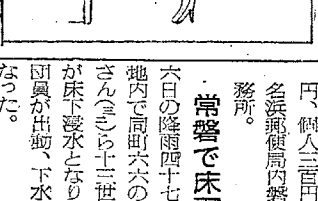 円、個人三百円
名浜郵便局内磐
務所。
常磐で床
六日の降雨四十七
地内で同町六六の
さん(三)ら十三世
が床下浸水となり
団員が出動、下水
なった。